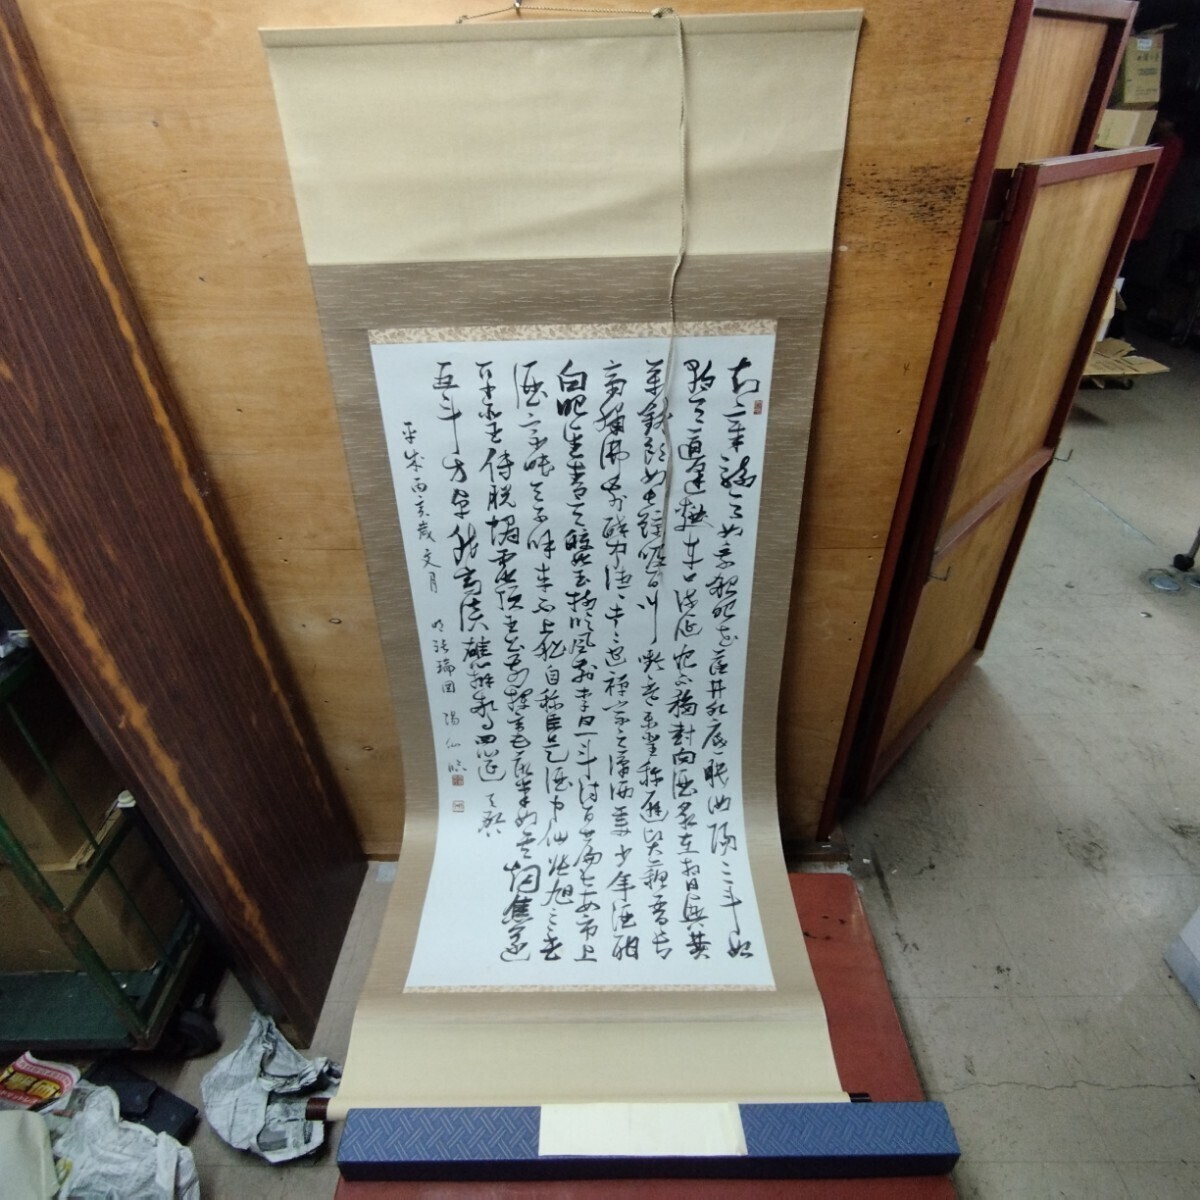 知章騎馬如乘船眼花落井水底眠汝陽三斗始
朝天道逢麹車口流涎恨不移封向酒泉左相日興費
萬錢飲如長鯨吸百川銜杯樂聖稱避賢蘇晋長
齋繍佛前醉中往々愛逃禅宗之瀟洒美少年酒酣
白眼望青天皎如玉樹臨風前李白一斗詩百篇長安市上
酒家眠天子呼来不上船自称臣是酒中仙張旭三杯
草聖傳脱帽露頂王公前揮毫落紙如雲烟焦遂
五斗方卓然高談雄辨驚四筵
平成丁亥歳文月 明張瑞図 陽仙臨